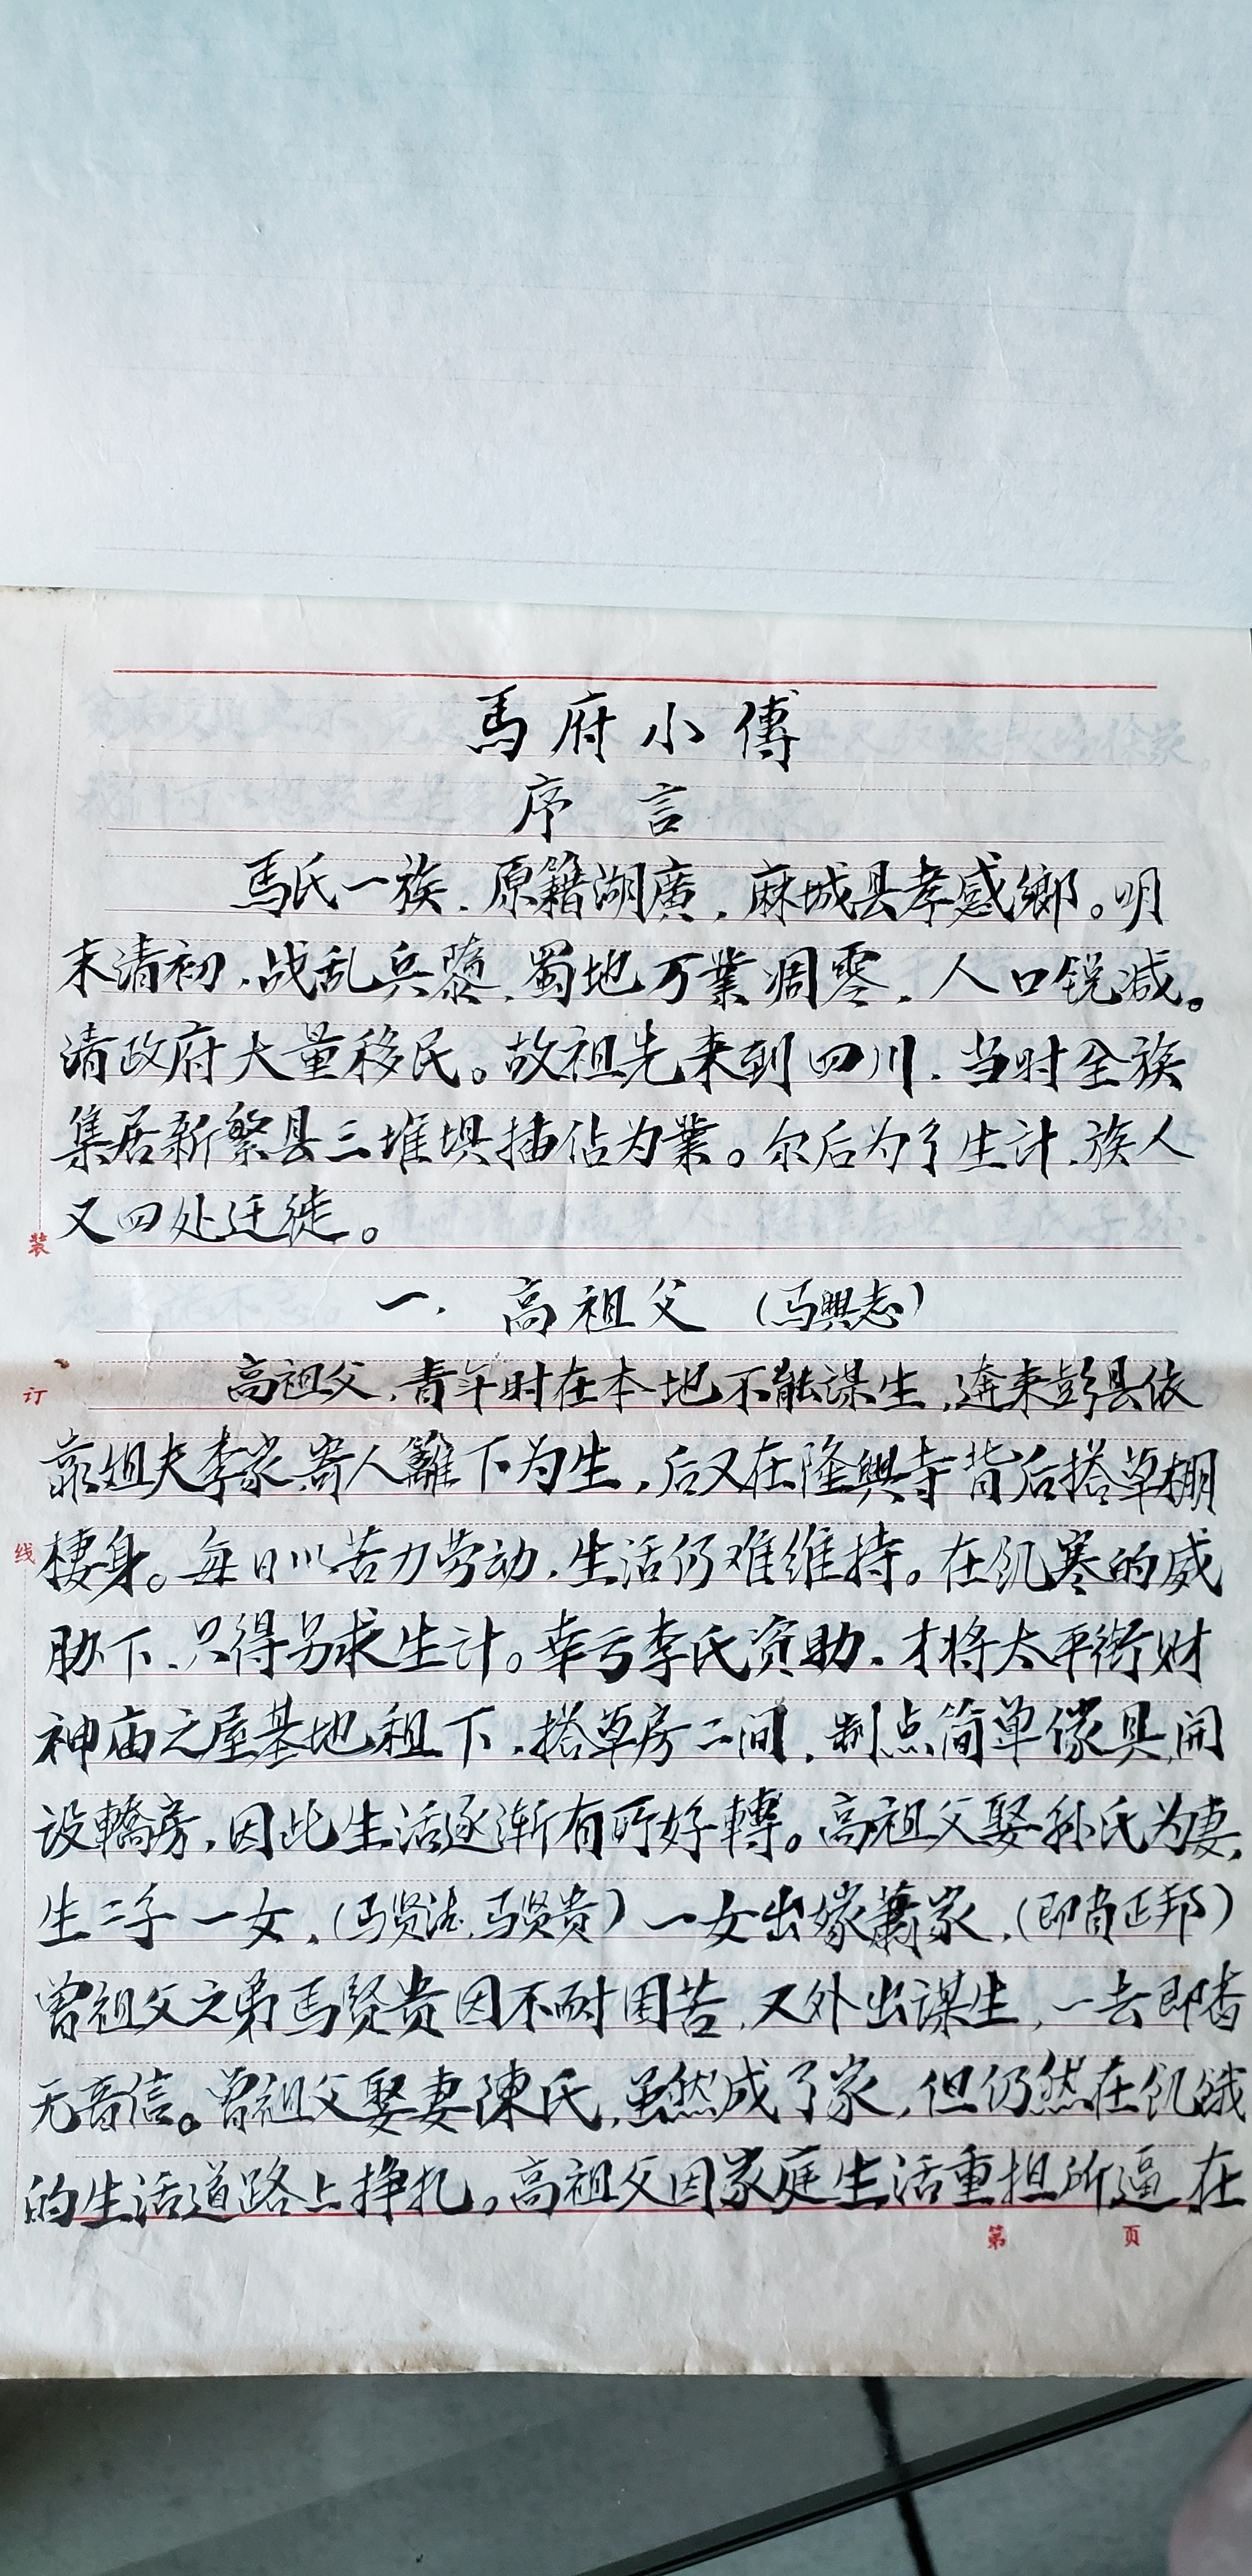 馬府小傳
序 言
馬氏一族,原籍湖廣,麻城县孝感鄉。明
末清初,战乱兵隳,蜀地万業凋零,人口锐减。
清政府大量移民。故祖先来到四川,当时全族
集居新繁县三堆垻插佔为業。尔后为了生计,族人
又四处迁徙。
一. 高祖父 (马興志)
高祖父,青年时在本地不能谋生,逩来彭县依
靠姐夫李家,寄人籬下为生,后又在隆興寺背后搭草棚
棲身。每日以苦力劳动,生活仍难维持。在饥寒的威
胁下,只得另求生计。幸亏李氏资助,才将太平街财
神庙之屋基地租下,搭草房二间,制点简单傢具,開
设轎房,因此生活逐渐有所好轉。高祖父娶孙氏为妻,
生二子一女,(马贤法,马贤贵)一女出嫁蕭家,(即肖正邦)
曾祖父之弟馬贤贵因不耐困苦,又外出谋生,一去即杳
无音信。曾祖父娶妻陳氏,虽然成了家,但仍然在饥饿
的生活道路上挣扎。高祖父因家庭生活重担所逼,在
装
订
线
第 页